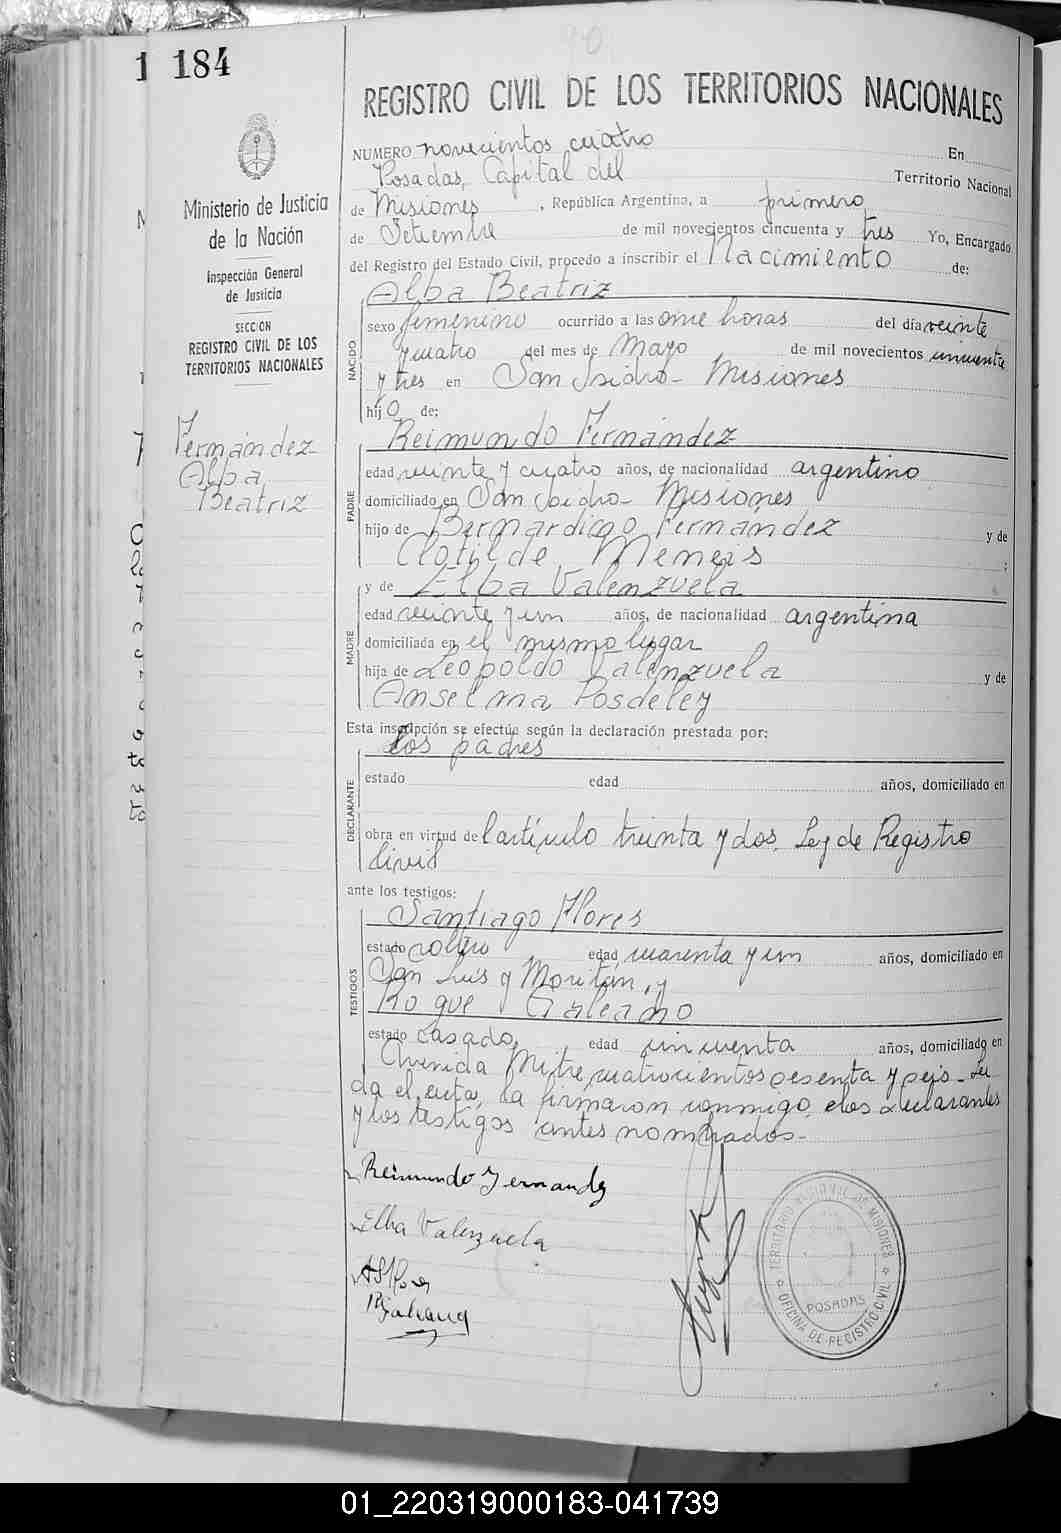 184
REGISTRO CIVIL DE LOS TERRITORIOS NACIONALES
Ministerio de Justicia
de la Nación
Inspección General
de Justicia
SECCION
REGISTRO CIVIL DE LOS
TERRITORIOS NACIONALES
Fernández
Alba
Beatriz
NUMERO novecientos cuatro En
Posadas, Capital del Territorio Nacional
de Misiones, República Argentina, a primero
de Setiembre de mil novecientos cincuenta y tres Yo, Encargado
del Registro del Estado Civil, procedo a inscribir el Nacimiento de:
Alba Beatriz
NACIDO
sexo femenino ocurrido a las once horas del día veinte
y cuatro del mes de Mayo de mil novecientos cincuenta
y tres en San Isidro - Misiones
hij a de:
Reimundo Fernández
PADRE
edad veinte y cuatro años, de nacionalidad argentino
domiciliado en San Isidro - Misiones
hijo de Bernardino Fernández y de
Clotilde ;
y de Elba Valenzuela
MADRE
edad veinte y un años, de nacionalidad argentina
domiciliada en el mismo lugar
hija de Leopoldo Valenzuela y de
Anselma Posdeley
Esta inscripción se efectúa según la declaración prestada por:
los padres
DECLARANTE
estado edad años, domiciliado en
obra en virtud del artículo treinta y dos, Ley de Registro
Civil
ante los testigos:
Santiago Flores
TESTIGOS
estado soltero edad cuarenta y un años, domiciliado en
San Luis y y
Roque Galeano
estado casado, edad cincuenta años, domiciliado en
Avenida Mitre cuatrocientos sesenta y seis - Leí
da el acta, la firmaron conmigo, los declarantes
y los testigos antes nombrados -
Reimundo Fernandez
Elba Valenzuela
TERRITORIO NACIONAL DE MISIONES
POSADAS
OFICINA DE REGISTRO CIVIL
01_220319000183-041739